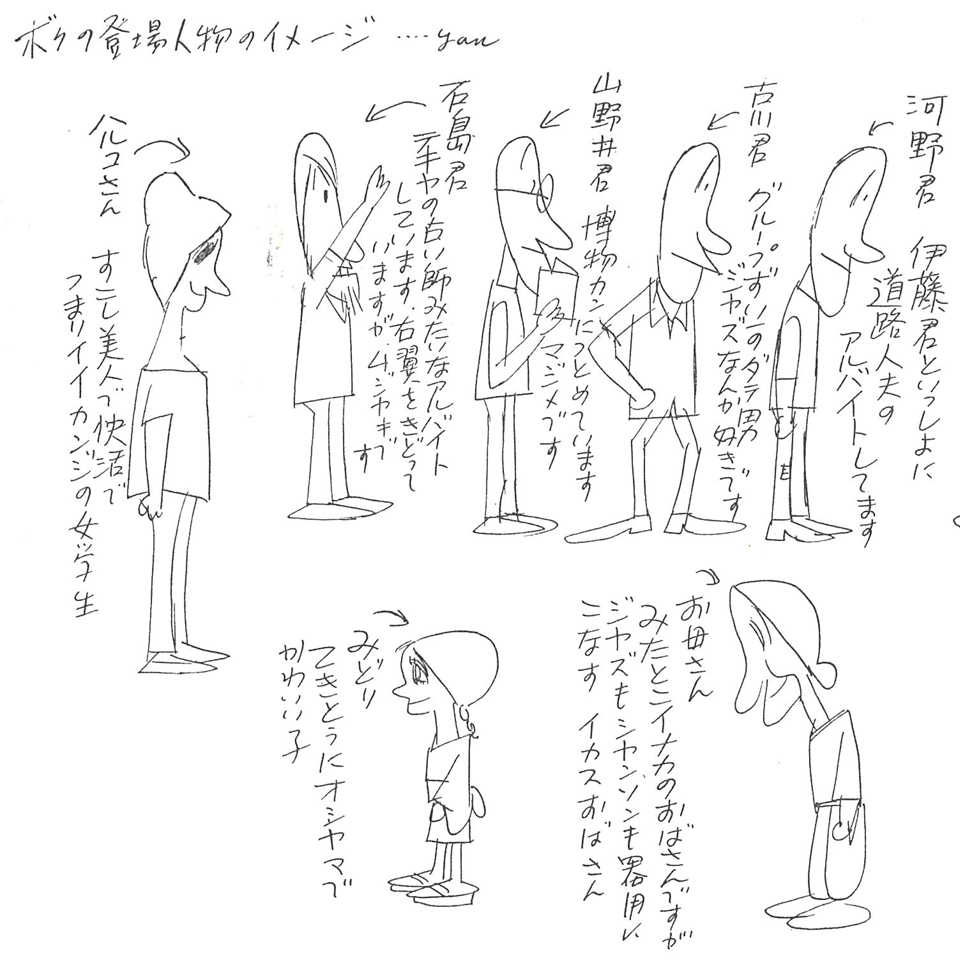 ボクの登場人物のイメージ ‥‥yan
河野君 伊藤君といっしょに
道路人夫の
アルバイトしてます
古川君 グループずい一のダテ男
ジャズなんか好きです
山野井君 博物カンにつとめています
マジメです
石島君
テキヤの占い師みたいなアルバイト
しています.右翼をきどって
いますが.ムジャキで
す
ハルコさん すこし美人で快活で
つまりイイカンジの女学生
お母さん
みたとこイナカのおばさんですが
ジャズもシャンソンも器用に
こなす イカスおばさん
みどり
てきとうにオシャマで
かわいい子